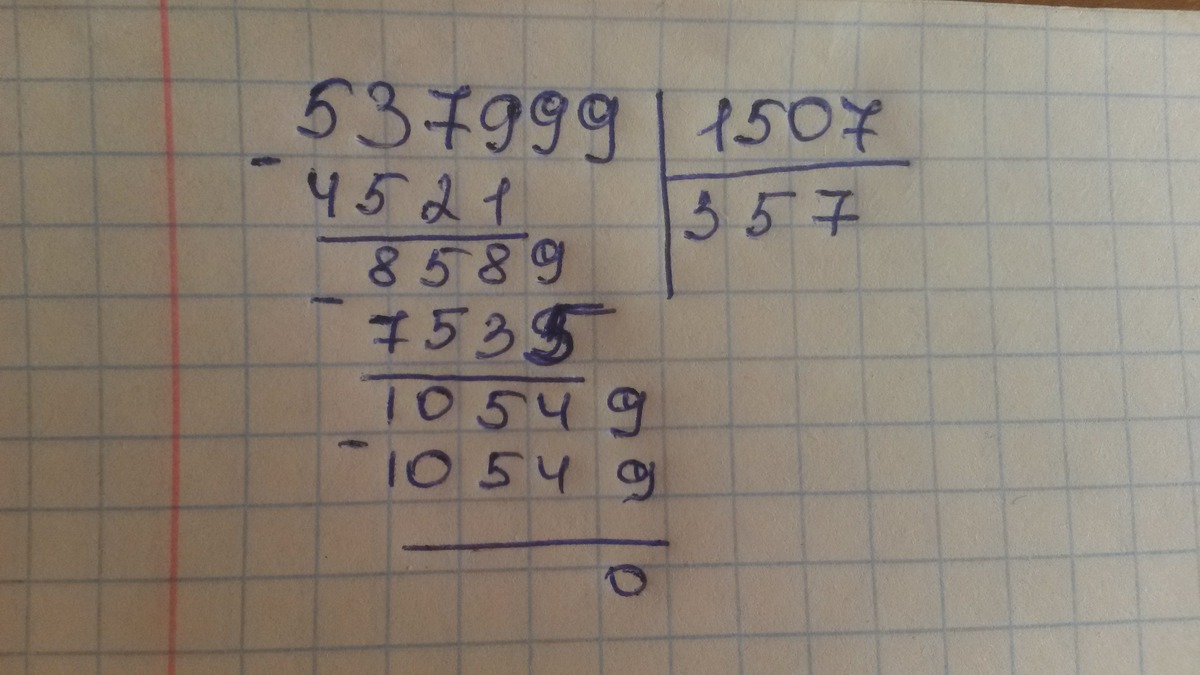 537999 | 1507
- 4521 | 357
8589
- 7535
10549
- 10549
0